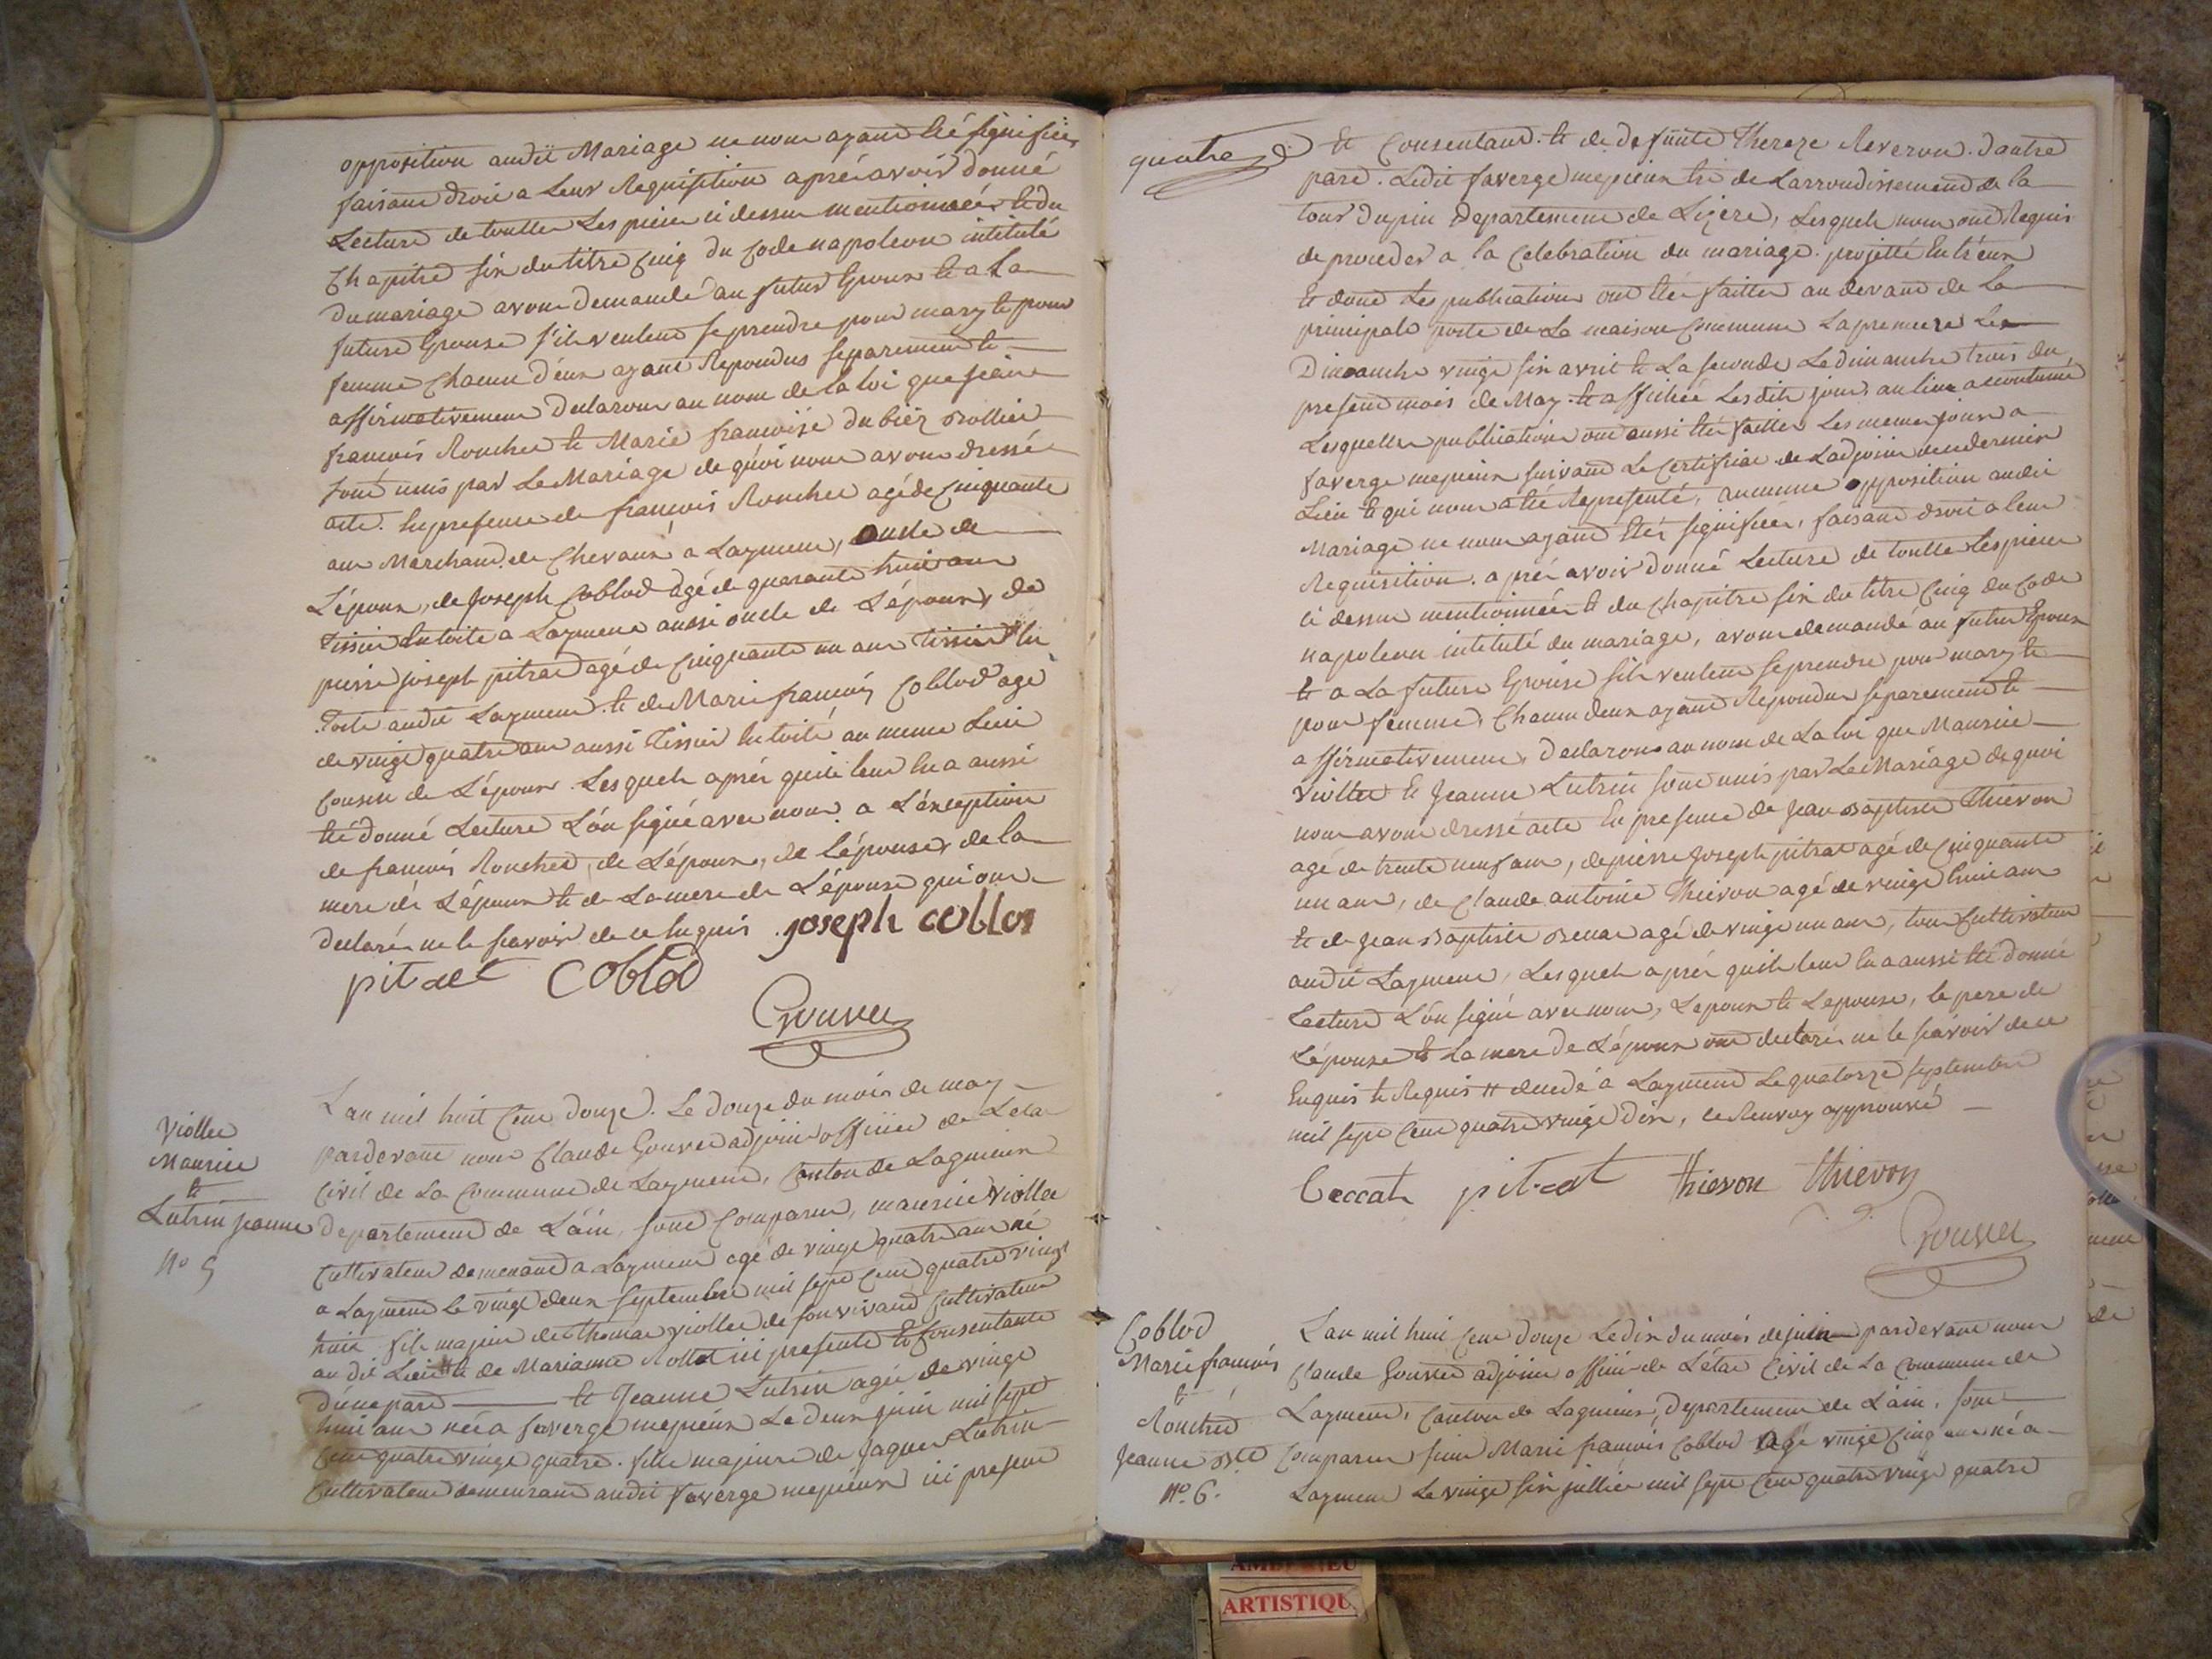 opposition audit Mariage ne nous ayant été signifiée,
faisant droit a Leur Requisition aprés avoir donné
Lecture de toutte Les pieces ci dessus mentionnées et du
Chapitre six du titre Cinq du Code napoleon intitulé
Du mariage avons demandé au futur Epoux et a La
future Epouse s'ils veulent se prendre pour mary et pour
femme Chacun d'eux ayant Repondus separement et
affirmativement Declarons au nom de la loi que
françois Rouchet et Marie françoise dubiez Rollier
sont unis par Le Mariage de quoi nous avons dressé
acte. En presence de françois Rouchet agé de Cinquante
ans Marchand de Chevaux a Laymens, oncle de
L'époux, de Joseph Coblod agé de quarante huit ans
Tissier En toile a Laymens aussi oncle de L'époux, de
pierre joseph pitrat agé de Cinquante un ans Tissier En
Toile audit Laymens et de Marie françois Coblod agé
de vingt quatre ans aussi Tissier En toile au meme Lieu
Cousin de L'époux. Lesquels aprés qu'il leur En a aussi
été donné Lecture L'on signé avec nous a L'exception
de françois Rouchet, de L'époux, de L'épouse, de la
mere de L'époux et de La mere de L'épouse qui ont
declarés ne le scavoir de ce Enquis. joseph coblos
pitrat Coblod
Gouvet
Viollet
Maurice
et
Lutrin jeanne
N° 5
L'an mil huit Cent Douze. Le Douze du mois de may
pardevant nous Claude Gouvet adjoint officier de L'etat
Civil de La Commune de Laymens, Canton de Lagnieux
Departement de L'ain, sont Comparus, maurice Viollet
Cultivateur demeurant a Laymens agé de vingt quatre ans né
a Laymens Le vingt deux septembre mil sept Cent quatre vingt
huit fils majeur de thomas viollet de son vivant Cultivateur
au dit Lieu # et de Marianne Rollet ici presente et Consentante
d'une part ——— et Jeanne Lutrin agée de vingt
huit ans née a faverge mepieux Le deux juin mil sept
Cent quatre vingt quatre. fille majeure de Jaques Lutrin
Cultivateur demeurant audit faverge mepieux ici present
quatre
et Consentant. et de defunte Thereze Reveron. d'autre
part. Ledit faverge mepieux de L'arrondissement de la
tour dupin Departement de Lizere, Lesquels nous ont Requis
de proceder a la Celebration du mariage projetté Entr'eux
et dont Les publications ont été faittes au devant de La
principale porte de La maison Commune La premiere Le
Dimanche vingt six avril et La seconde Le dimanche trois du
present mois de May et affichée Lesdits jours au lieu accoutumé
Lesquelles publications ont aussi été faittes Les memes jours a
faverge mepieux suivant Le Certificat de L'adjoint dudernier
Lieu et qui nous a été Representé, aucunne opposition audit
Mariage ne nous ayant été signifiée, faisant droit a leur
Requisition. aprés avoir donné Lecture de toutte Les pieces
ci dessus mentionnées et du Chapitre six du titre Cinq du Code
napoleon intitulé du mariage, avons demandé au futur Epoux
et a La future Epouse s'ils veulent se prendre pour mary et
pour femme, Chacun deux ayant Repondus separement et
affirmativement, Declarons au nom de La loi que Maurice
Viollet et Jeanne Lutrin sont unis par Le Mariage de quoi
nous avons dressé acte En presence de Jean Baptiste Thievon
agé de trente neuf ans, de pierre Joseph pitrat agé de Cinquante
un ans, de Claude antoine Thievon agé de vingt huit ans
et de Jean Baptiste agé de vingt un ans, tous Cultivateurs
audit Laymens, Lesquels aprés qu'il leur En a aussi été donné
Lecture L'on signé avec nous, L'époux et L'epouse, le pere de
L'épouse et La mere de L'époux ont declarés ne le scavoir de ce
Enquis et Requis # decedé a Laymens Le quatorze septembre
mil sept Cent quatre vingt dix, ce Renvoy approuvé
pitrat thievon thievon
Gouvet
Coblod
Marie françois
et
Rouchet
Jeanne Bte
N° 6.
L'an mil huit Cent douze Le dix du mois de juin pardevant nous
Claude Gouvet adjoint officier de L'état Civil de La Commune de
Laymens, Canton de Lagnieux, Departement de L'ain, sont
Comparus sieur Marie françois Coblod agé vingt Cinq ans né a
Laymens Le vingt six juillet mil sept Cent quatre vingt quatre
ARTISTIQU